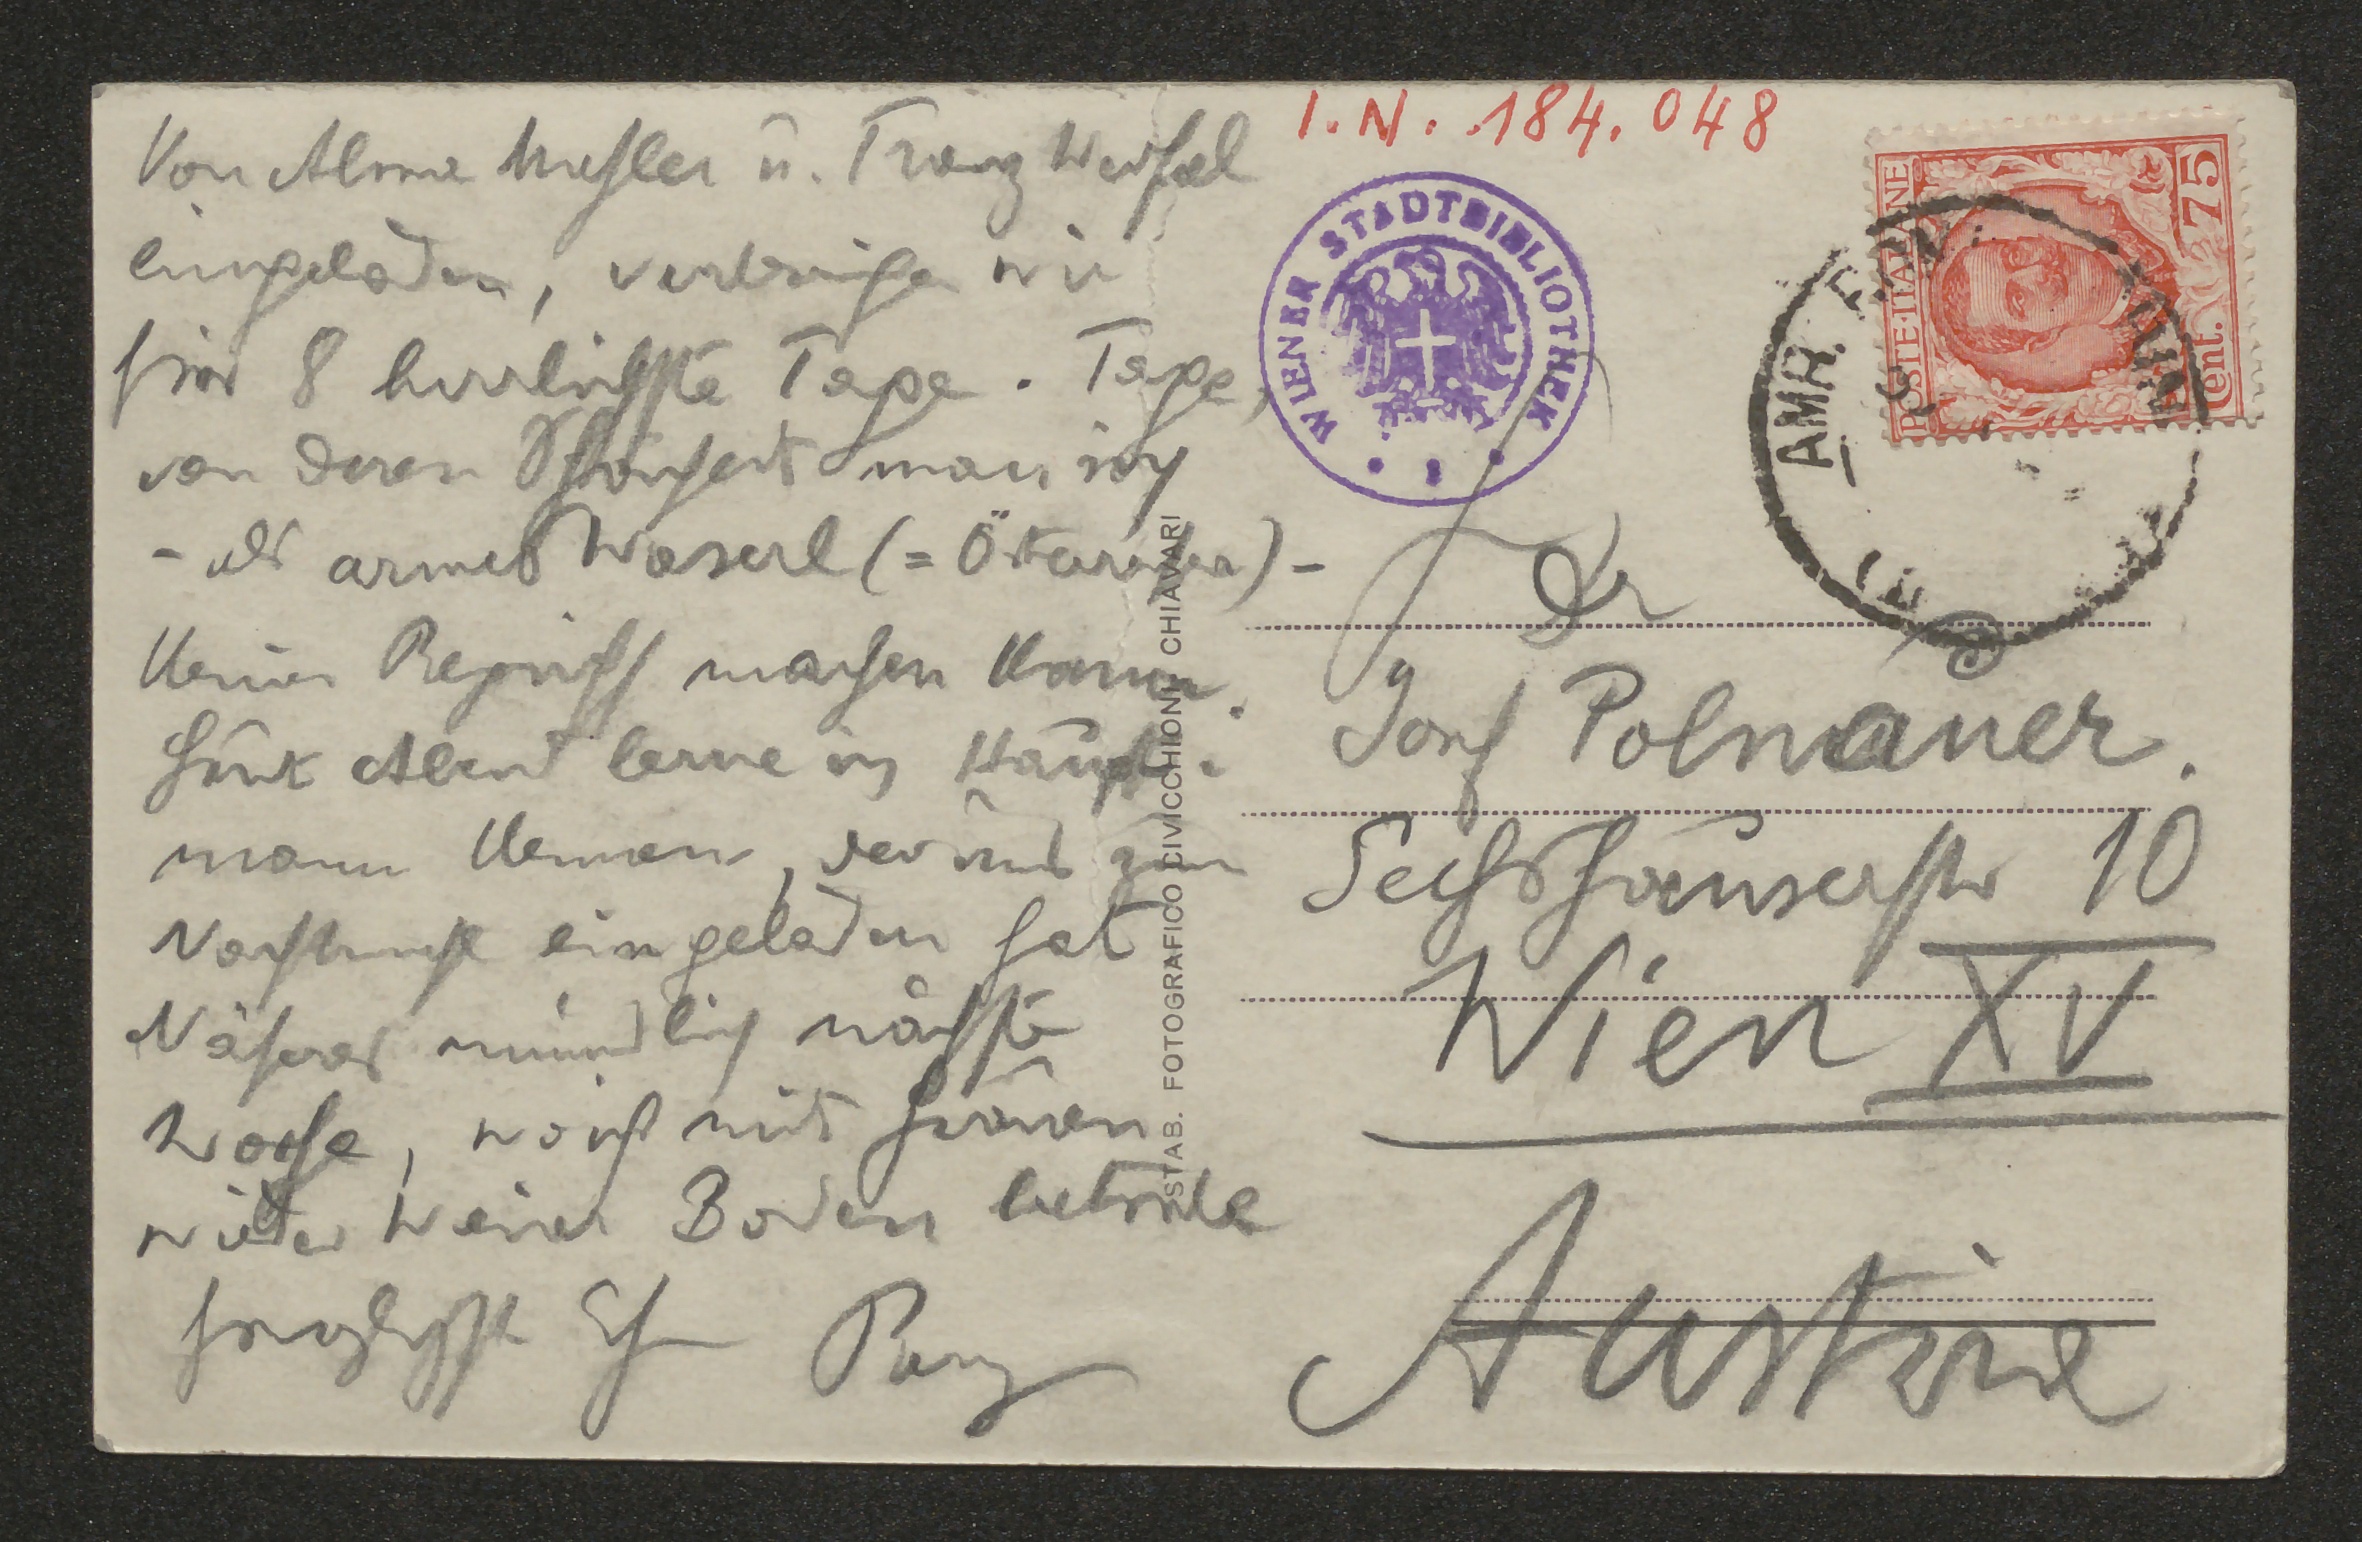 Von Alma Mahler u. Franz Werfel
eingeladen, verbringen wir
hier 8 herrlichste Tage. Tage,
von deren Schönheit man sich
- als armes Waserl (= Österreicher) -
keinen Begriff machen kann.
Heut Abend lerne ich Haupt-
mann kennen, der uns zum
Nachtmahl eingeladen hat
Näheres mündlich nächste
Woche, wo ich mit Grauen
wieder Wiener Boden betrete
herzlichst Ihr Berg
I.N. 184.048
WIENER STADTBIBLIOTHEK
POSTE ITALIANE
Cent. 75
AMB.
Dr
Josef Polnauer.
Sechshauserstr 10
Wien XV
Austria
STAB. FOTOGRAFICO CIVICCHIONI CHIAVARI